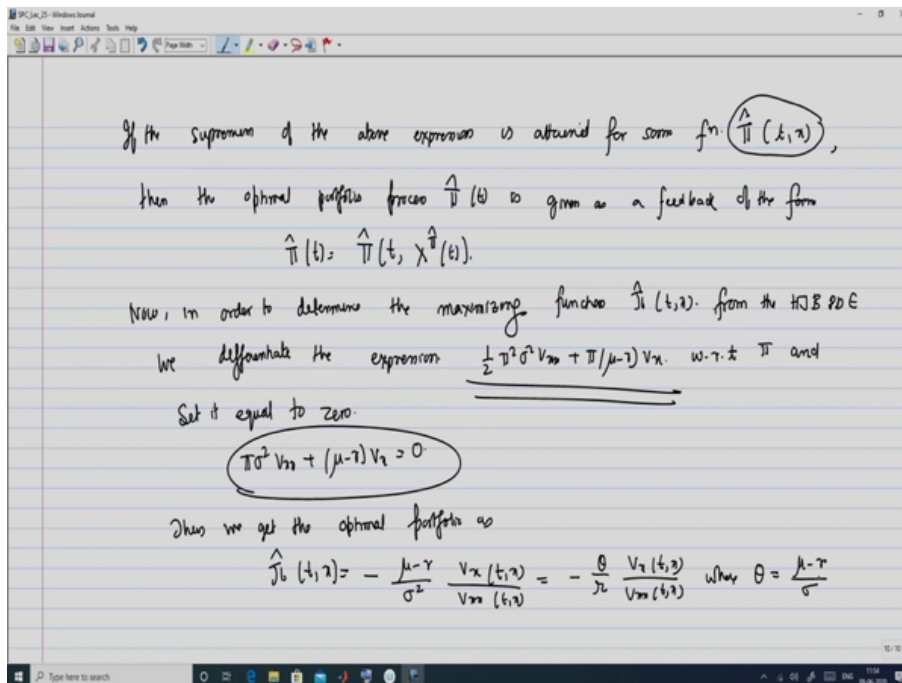 SPC_Lec_25 - Windows Journal
File Edit View Insert Actions Tools Help
Page Width
If the supremum of the above expression is attained for some fn. π̂ (t,x),
then the optimal portfolio process π̂ (t) is given as a feedback of the form
π̂ (t) = π̂ (t, X^π̂ (t)).
Now, in order to determine the maximizing function π̂ (t,x). from the HJB PDE
we differentiate the expression ½ π²σ² Vxx + π(μ-r) Vx. w.r.t π and
Set it equal to zero.
πσ² Vxx + (μ-r) Vx = 0.
Then we get the optimal portfolio as
π̂ (t,x) = - μ-r/σ² Vx (t,x)/Vxx (t,x) = - θ/σ Vx (t,x)/Vxx (t,x) where θ = μ-r/σ
10 / 10
Type here to search
ENG
11:54
06-06-2020